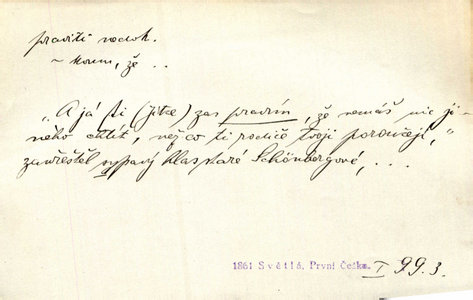 praviti nedok.
~ komu, že . .
„A já ti (Jitce) zas pravím, že nemáš nic ji-
ného chtít, než co ti rodiče tvoji poroučejí,"
zavřeštěl sypavý hlas staré Schönbergové, . . .
1861 Světlá, První Češka. I 99. 3.